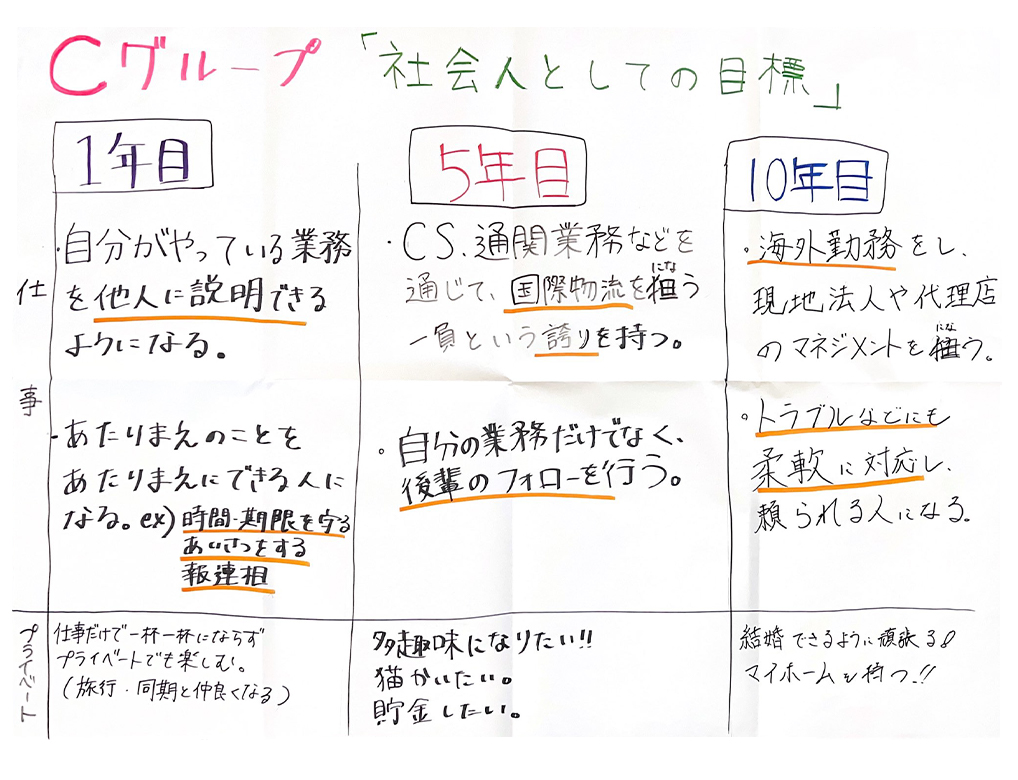 Cグループ 「社会人としての目標」
1年目
5年目
10年目
仕事
・自分がやっている業務
を他人に説明できる
ようになる。
・あたりまえのことを
あたりまえにできる人に
なる。ex) 時間・期限を守る
あいさつをする
報連相
・CS、通関業務などを
にな
通じて、国際物流を狙う
一負という誇りを持つ。
。自分の業務だけでなく、
後輩のフォローを行う。
。海外勤務をし、
現地法人や代理店
にな
のマネジメントを狙う。
。トラブルなどにも
柔軟に対応し、
頼られる人になる。
プライベート
仕事だけで一杯一杯にならず
プライベートでも楽しむ。
(旅行・同期と仲良くなる)
多趣味になりたい!!
猫かいたい。
貯金したい。
結婚できるように頑張る!
マイホームを持つ!!